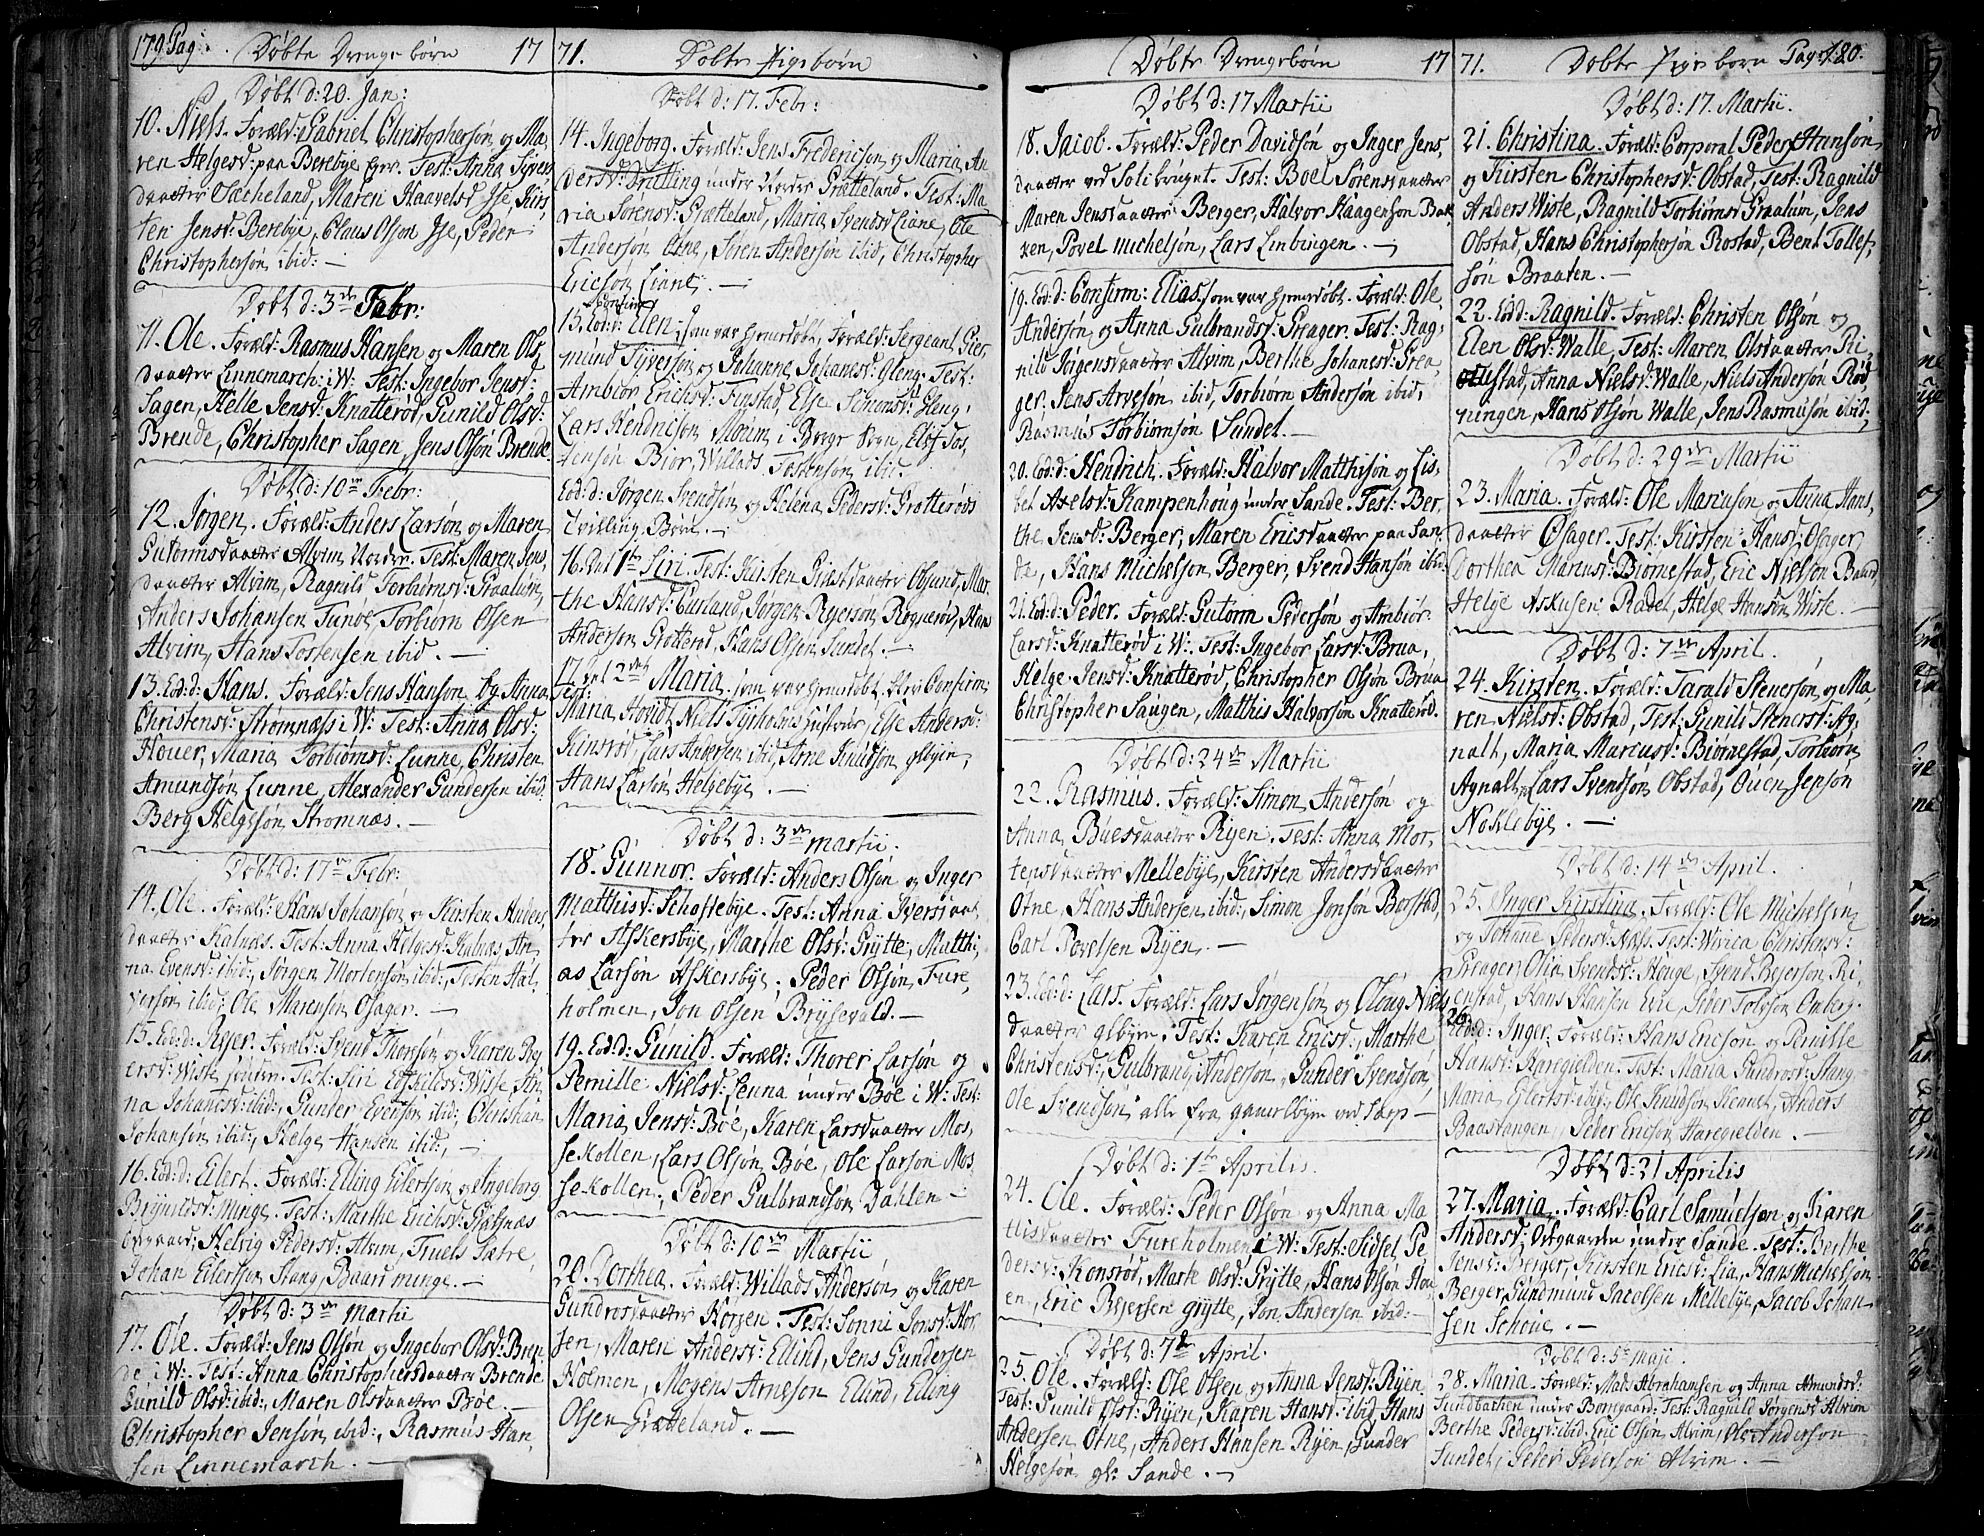 179 Pag: Døbte Drenge børn 17
Døbt d: 20. Jan:
10. Niels. Foræld: Gabriel Christophersøn og Ma,
ren Helgesd: paa Berebye Test: Anna Sivers
daatter Olacheland, Maren Haavelsd Jse, Kirs,
ten Jensd: Berebye, Claus Olsøn Jse, Peder
Christophersøn ibid: —
Døbt d: 3de Febr:
11. Ole. Foræld: Rasmus Hansen og Maren Ols,
daatter Linnemarch i W: Test: Ingebor Jensd:
Sagen, Helle Jensd: Knatterød, Gunild Olsd:
Brende, Christopher Sagen, Jens Olsøn Brende.
Døbt d: 10de Febr:
12. Jørgen. Foræld: Anders Larsøn og Maren
Gutormsdaatter Alvim Nordre. Test: Maren Jens,
daatter Alvim, Ragnild Torbiørnsd: Graalum,
Anders Johansen Tunøe, Torbiørn Olsen
Alvim, Hans Tostensen ibid. —
13. Eod: d: Hans. Foræld: Jens Hansøn og Anna
Christensd: Strømnæss i W: Test: Anna Olsd:
Houer, Maria Torbiørnsd: Lunne, Christen
Amundsøn Lunne, Alexander Gundersen ibid.
Berg Helgesøn Stromnæs. —
Døbt d: 17de Febr:
14. Ole. Foræld: Hans Johansøn og Kirsten Anders,
daatter Kalnæs. Test: Anna Helgesd: Kalnæs, An,
na Evensd: ibid:, Jørgen Mortensøn ibid:, Tosten Hal,
versøn ibid:, Ole Marensøn Osager. —
15. Eod: d: Reyer. Foræld: Svend Thoresøn og Karen Rey
ersd: Wiste søndre. Test: Siri Wiste, An,
na Johansd: ibid:, Gunder Eversøn ibid:, Christian
Johansøn ibid:, Helge Hansen ibid:, —
16. Eod: d: Eilert. Foræld: Elling Eilertsøn og Ingeborg
Brynildsd: Minge. Test: Marthe Erichsd:
Helvig Pedersd: Alvim, Truels Sætre,
Johan Eilertsøn Stang, Baard Minge. —
Døbt d: 3de Martii
17. Ole. Foræld: Jens Olsøn og Ingebor Olsd: Bren
de, i W: Test: Anna Christophersdaatter Brende
Gunild Olsd: ibid:, Maren Olsdaatter Bøe. —
Christopher Jensøn ibid:, Rasmus Han,
sen Linnemarch. —
71. Døbte Pigebørn
Døbt d: 17. Febr:
14. Ingeborg. Foræld: Jens Fredericsøn og Maria An
dersd: under Nordre Grætteland. Test: Ma
ria Sørensd: Grætteland, Maria Svendsd Liane, Ole
Andersøn Otne, Søren Andersøn ibid, Christopher
Ericsøn Liane. —
Confirm
15. Eod: d: Elen: som var hjemedøbt, Foræld: Sergeant Gier,
mund Syversøn og Johanne Johansd: Gleng. Test:
Ambiør Erichsd: Finstad, Else Simonsd Gleng,
Lars Hendricsøn Moum i Berge Sogn, Elef Jos,
tensøn Biør, Willads Tostensøn ibid.
Eod: d: Jørgen Svendsøn og Helena Pedersd: Grotterøds
Tvilling Børn. —
16. Det 1te Siri. Test: Kirsten Olsund, Mar
the Hansd: Gurland, Jørgen Ryersøn Røgnerød, Han
Andersøn Grotterød, Hans Olsen Sundet. —
17. Det 2det Maria. som var hjemedøbt, blev Confirm,
Test: Maria Hovidt Niels Tyrholms Hustrue, Else Andersd:
Kinsrød, Lars Andersen ibid, Arne Knudsøn glbyen,
Hans Larsøn Helgebye. —
Døbt d: 3de Martii.
18. Gunnor. Foræld: Anders Olsøn og Inger
Matthisd: Schoftebye. Test: Anna Iversdaat,
ter Askersbye, Marthe Olsd: Grytte, Matthi,
as Larsøn Askersbye, Peder Olsøn Fure,
holmen, Jon Olsen Brysevald. —
19. Eod: d: Gunild. Foræld: Thorer Larsøn og
Pernille Nielsd: Lenna under Bøe i W: Test:
Maria Jensd: Bøe, Karen Larsdaatter Mos,
sekollen, Lars Olsøn Bøe, Ole Larson Mos
sekollen, Peder Gulbrandsøn Dahlen —
Døbt d: 10de Martii
20. Dorthea. Foræld: Willads Andersøn og Karen
Gundersdaatter Horgen. Test: Sønni Jonsd: Hor
sen, Maren Andersd: Elind, Jens Gundersen
Holmen, Mogens Arnesøn Elind, Elling
Olsen Grætteland. —
Døbte Drengebørn 17
Døbt d: 17 Martii
18. Jacob. Foræld: Peder Davidsøn og Inger Jens,
daatter ved Solibruget. Test: Boel Sørensdaatter
Maren Jensdaatter Berger, Halvor Haagensøn Bak
ken, Povel Michelsøn, Lars Linbingen. —
19. Eod: d: Confirm: Elias, som var hjemedøbt. Foræld: Ole
Andersøn og Anna Gulbrandsd: Greager. Test: Rag,
nild Jørgensdaatter Alvim, Berthe Johansd: Grea
ger, Jens Arvesøn ibid, Torbiørn Andersøn ibid,
Rasmus Torbiørnsøn Sundet. —
20. Eod: d: Hendrich. Foræld: Halvor Matthisøn og Lis,
bet Axelsd: Kampenhoug under Sande. Test: Ber,
the Jensd: Berger, Maren Ericsdaatter paa San,
de, Hans Michelsøn Berger, Svend Hansøn ibid.
21. Eod: d: Peder. Foræld: Gutorm Pedersøn og Ambiør
Larsd: Knatterød i W: Test: Ingebor Larsd: Brua,
Helge Jensd: Knatterød, Christopher Olsøn Brua
Christopher Saugen, Matthis Halvorsøn Knatterød.
Døbt d: 24de Martii
22. Rasmus. Foræld: Simon Andersøn og
Anna Buesdaatter Ryen. Test: Anna Mor,
tensdaatter Mellebye, Kirsten Andersdaatter
Otne, Hans Andersen ibid:, Simon Jonsøn Borstad,
Carl Povelsen Ryen. —
23. Eod: d: Lars. Foræld: Lars Jørgensøn og Oloug Niels
daatter glbyen. Test: Karen Ericsd:, Marthe
Christensd:, Gulbrand Andersøn, Gunder Svendsøn,
Ole Svendsøn alle fra gamelbyen ved Sarp —
Døbt d: 1te Aprilis.
24. Ole. Foræld: Peder Olsøn og Anna Ma
tisdaatter Fureholmen i W: Test: Sidsel Pe
dersd: Konsrød, Marte Olsd: Grytte, Hans Olsøn Hou
en, Eric Reyersen Grytte, Jon Andersen ibid: —
Døbt d: 7de April.
25. Ole. Foræld: Ole Olsen og Anna Jensd: Ryen
Test: Gunild Olsd: Ryen, Karen Hansd: ibid, Hans
Andersen Otne, Anders Hansen Ryen, Gunder
Helgesøn gl: Sande. —
71. Døbte Pige børn Pag: 180.
Døbt d: 17. Martii.
21. Christina. Foræld: Corporal Peder Hansøn
og Kirsten Christophersd: Obstad, Test: Ragnild
Anders Wiste, Ragnild Torbiørnsd Graalum, Jens
Obstad, Hans Christophersøn Rostad, Bent Tollef,
søn Braaten. —
22. Eod: d: Ragnild. Foræld: Christen Olsøn og
Elen Olsd: Walle, Test: Maren Olsdaatter Ri,
stad, Anna Nielsd: Walle, Niels Andersøn Rød,
ningen, Hans Olsøn Walle, Jens Rasmusøn ibid.
Døbt d: 29de Martii
23. Maria. Foræld: Ole Mariusøn og Anna Hans,
daatter Osager. Test: Kirsten Hansd: Osager
Dorthea Marcusd: Biørnestad, Eric Nielsøn Baard
Helje Askusen Radet, Helge Hansøn Wiste. —
Døbt d: 7de April.
24. Kirsten. Foræld: Tarald Stenersøn og Ma,
ren Nielsd: Obstad, Test: Gunild Stenersd: Ag,
nalt, Maria Marcusd: Biørnestad, Torbiørn
Agnalt, Lars Svendsøn Obstad, Ouen Jensøn
Noklebye. —
Døbt d: 14de April.
25. Inger Kirstina. Foræld: Ole Michelsøn
og Johanne Pedersd: Næs. Test: Wivica Christensd:
Greager, Olia Svendsd: Honge, Svend Reyersøn Ri,
enstad, Hans Hansen Eie, Peder Tolvsøn Omberg.
26. Eod: d: Inger. Foræld: Hans Ericsøn og Pernille
Hansd: Haregielden. Test: Maria Gundrosd: Stang
Maria Eilertsd: ibid:, Ole Knudsøn Anders
Baastangen, Peder Ericsøn Haregielden. —
Døbt d: 21 Aprilis
27. Maria. Foræld: Carl Samuelsøn og Karen
Andersd: Ostgaarden under Sande. Test: Berthe
Jensd: Berger, Kirsten Ericsd: Lia, Hans Michelsøn
Berger, Gundmund Jacobsen Mellebye, Jacob Johan
sen Schoue. —
Døbt d: 5te Maji.
28. Maria. Foræld: Mads Abrahamsen og Anna Amundsd:
Sundbachen under Borregaard: Test: Ragnild Jørgensd Alvim
Berthe Pedersd: ibid. Eric Olsøn Alvim, Ole Anderson
Sundet, Peder Pedersøn Alvim. —